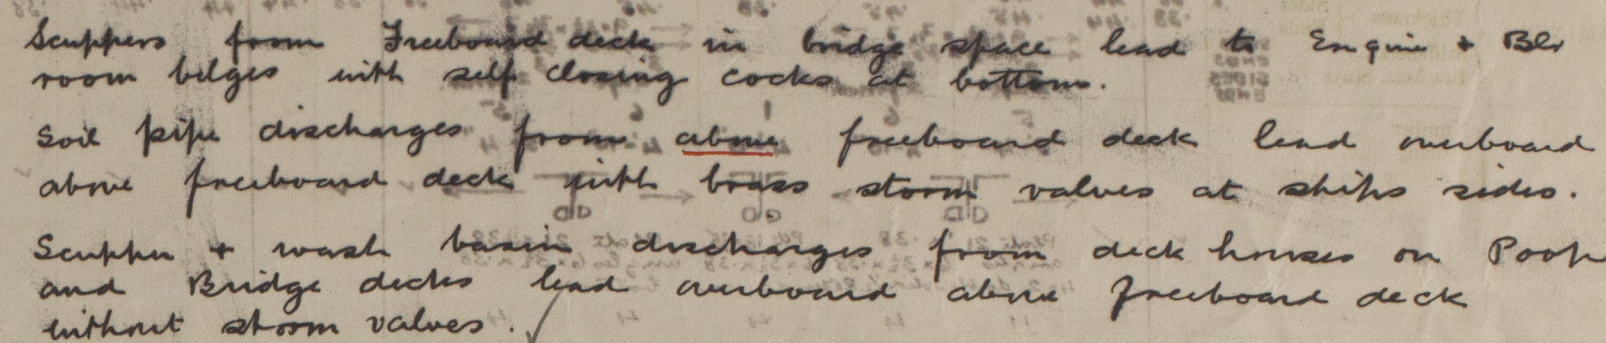 Scuppers from Freeboard deck in bridge space lead to Engine + Blr
room bilges with self closing cocks at bottom.
Soil pipe discharges from above freeboard deck lead overboard
above freeboard deck with brass storm valves at ships sides.
Scupper + wash basin discharges from deck houses on Poop
and Bridge decks lead overboard above freeboard deck
without storm valves.